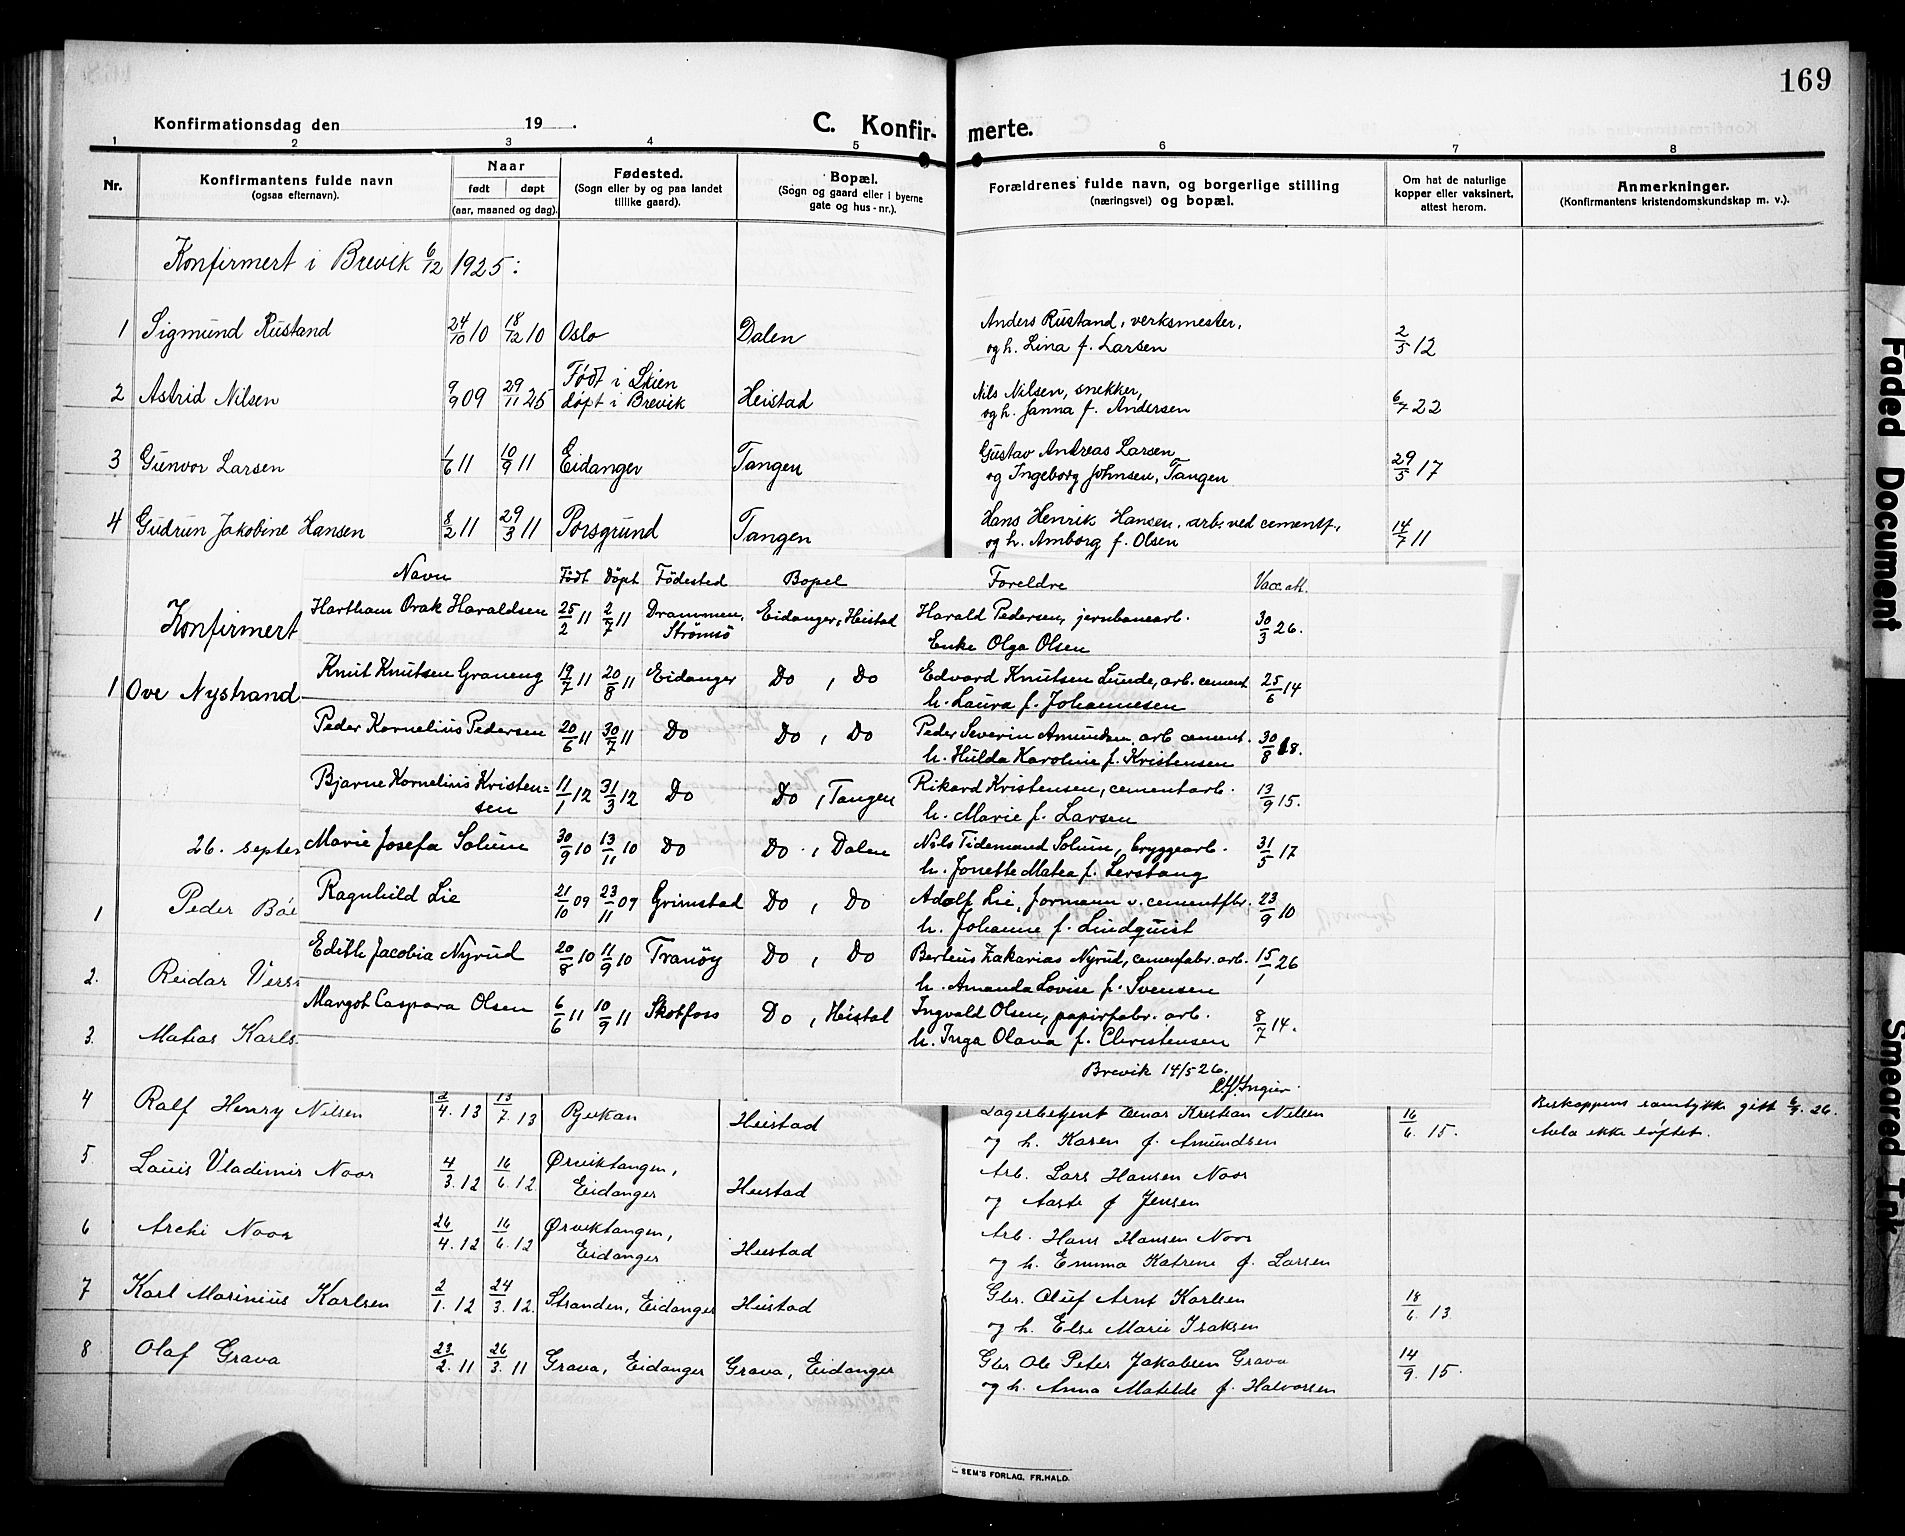 169
Konfirmationsdag den 19 .
C. Konfir- merte.
1 2 3 4 5 6 7 8
Nr.
Konfirmantens fulde navn
(ogsaa efternavn).
Naar
født døpt
(aar, maaned og dag).
Fødested.
(Sogn eller by og paa landet
tillike gaard).
Bopæl.
(Sogn og gaard eller i byerne
gate og hus-nr.).
Forældrenes fulde navn, og borgerlige stilling
(næringsvei) og bopæl.
Om hat de naturlige
kopper eller vaksinert.
attest herom.
Anmerkninger.
(Konfirmantens kristendomskundskap m. v.).
Konfirmert i Brevik 6/12 1925:
1 Sigmund Rustand 24/10 10 18/12 10 Oslo Dalen Anders Rustand, verksmester, 2/5 12
og h. Lina f. Larsen
2 Astrid Nilsen 9/9 09 29/11 25 Født i Skien Heistad Nils Nilsen, snekker, 6/7 22
døpt i Brevik og h. Janna f. Andersen
3 Gunvor Larsen 1/6 11 10/9 11 Eidanger Tangen Gustav Andreas Larsen 29/5 17
og Ingeborg Johnsen, Tangen
4 Gudrun Jakobine Hansen 8/2 11 29/3 11 Porsgrund Tangen Hans Henrik Hansen, arb. ved cementf., 14/7 11
og h. Amborg f. Olsen
Navn Født Døpt Fødested Bopel Foreldre Vacc. at.
Konfirmert
Hartham Orak Haraldsen 25/2 11 2/7 11 Drammen, Eidanger, Heistad Harald Pedersen, jernbanearb. 30/3 26.
Strømsö Enke Olga Olsen
1 Ove Nystrand
Knut Knutsen Graneng 19/7 11 20/8 11 Eidanger Do , Do Edvard Knutsen Lunde, arb. cement 25/6 14
h. Laura f. Johannesen
Peder Kornelius Pedersen 20/6 11 30/7 11 Do Do , Do Peder Severin Amundsen, arb cement. 30/8 18.
h. Hulda Karoline f. Kristensen
Bjarne Kornelius Kristen= 11/1 12 31/3 12 Do Do , Tangen Rikard Kristensen, cementarb. 13/9 15.
sen h. Marie f. Larsen
26. septe
Marie Josefa Solum 30/9 10 13/11 10 Do Do , Dalen Nils Tidemand Solum, bryggearb. 31/5 17
h. Jonette Matea f. Lerstang
1 Peder Bå
Ragnhild Lie 21/10 09 23/11 09 Grimstad Do , Do Adolf Lie, formann v. cementfbr. 23/9 10
h. Johanne f. Lindquist
2. Reidar
Edith Jacobia Nyrud 20/8 10 11/9 10 Tranöy Do , Do Berteus Zakarias Nyrud, cemenfabr. arb. 15/1 26
h. Amanda Lovise f. Svensen
3. Matias Karls
Margot Caspara Olsen 6/6 11 10/9 11 Skotfoss Do , Heistad Ingvald Olsen, papirfabr. arb. 8/7 14.
h. Inga Olava f. Christensen
Brevik 14/5 26.
Ingier.
4 Ralf Henry Nilsen 2/4. 13 13/7. 13 Rjukan Heistad Lagerbetjent Einar Kristian Nilsen 16/6. 15. Biskoppens samtykke gitt 6/9. 26.
og h. Karen f. Amundsen Avla ikke løftet.
5 Louis Vladimir Noor 4/3. 12 16/6. 12 Ørviktangen, Heistad Arb. Lars Hansen Noor
Eidanger og Aaste f Jensen
6 Archi Noor 26/4. 12 16/6. 12 Ørviktangen, Heistad Arb. Hans Hansen Noor
Eidanger og h. Emma Katrene f. Larsen
7 Karl Marinius Karlsen 2/1. 12 24/3. 12. Stranden, Eidanger Heistad Gbr. Oluf Arnt Karlsen 18/6. 13
og h. Else Marie Isaksen
8 Olaf Grava 23/2. 11 26/3. 11 Grava, Eidanger Grava, Eidanger Gbr Ole Peter Jakobsen Grava 14/9. 15.
og h. Anna Matilde f. Halvorsen
SEM'S FORLAG, FR.HALD.
Faded Document
Smeared Ink